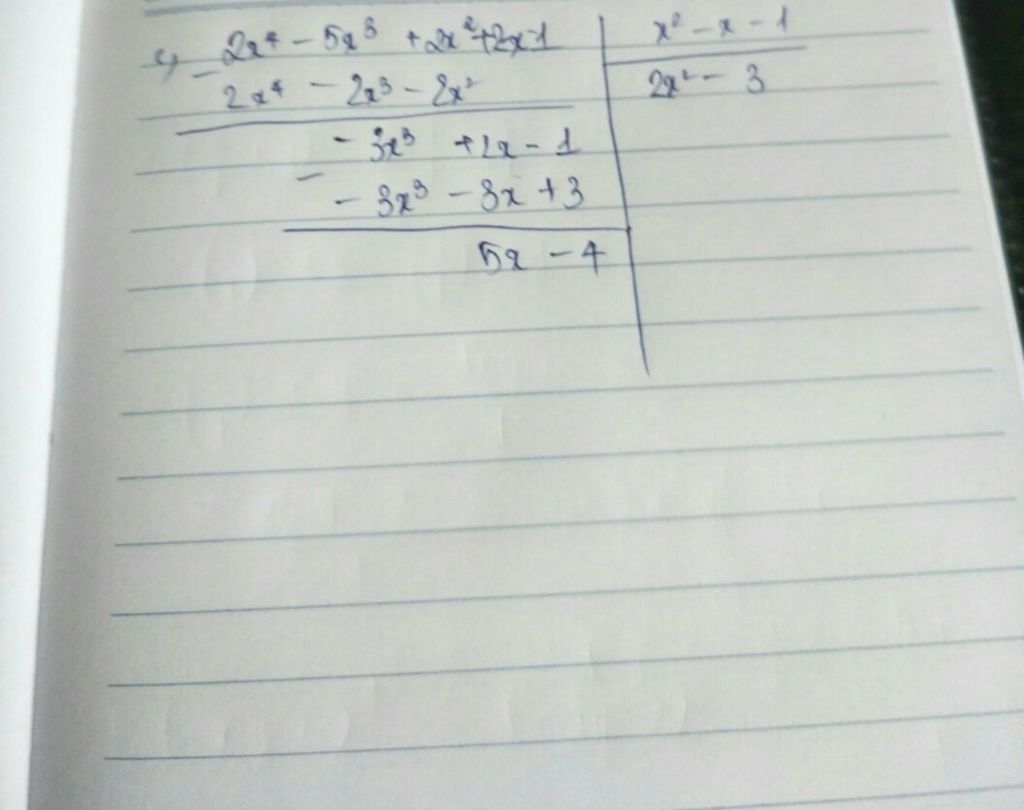 c) 2x⁴ - 5x³ + 2x² + 2x - 1 | x² - x - 1
- 2x⁴ - 2x³ - 2x² | 2x² - 3
- 3x³ + 2x - 1
- - 3x³ - 3x + 3
5x - 4